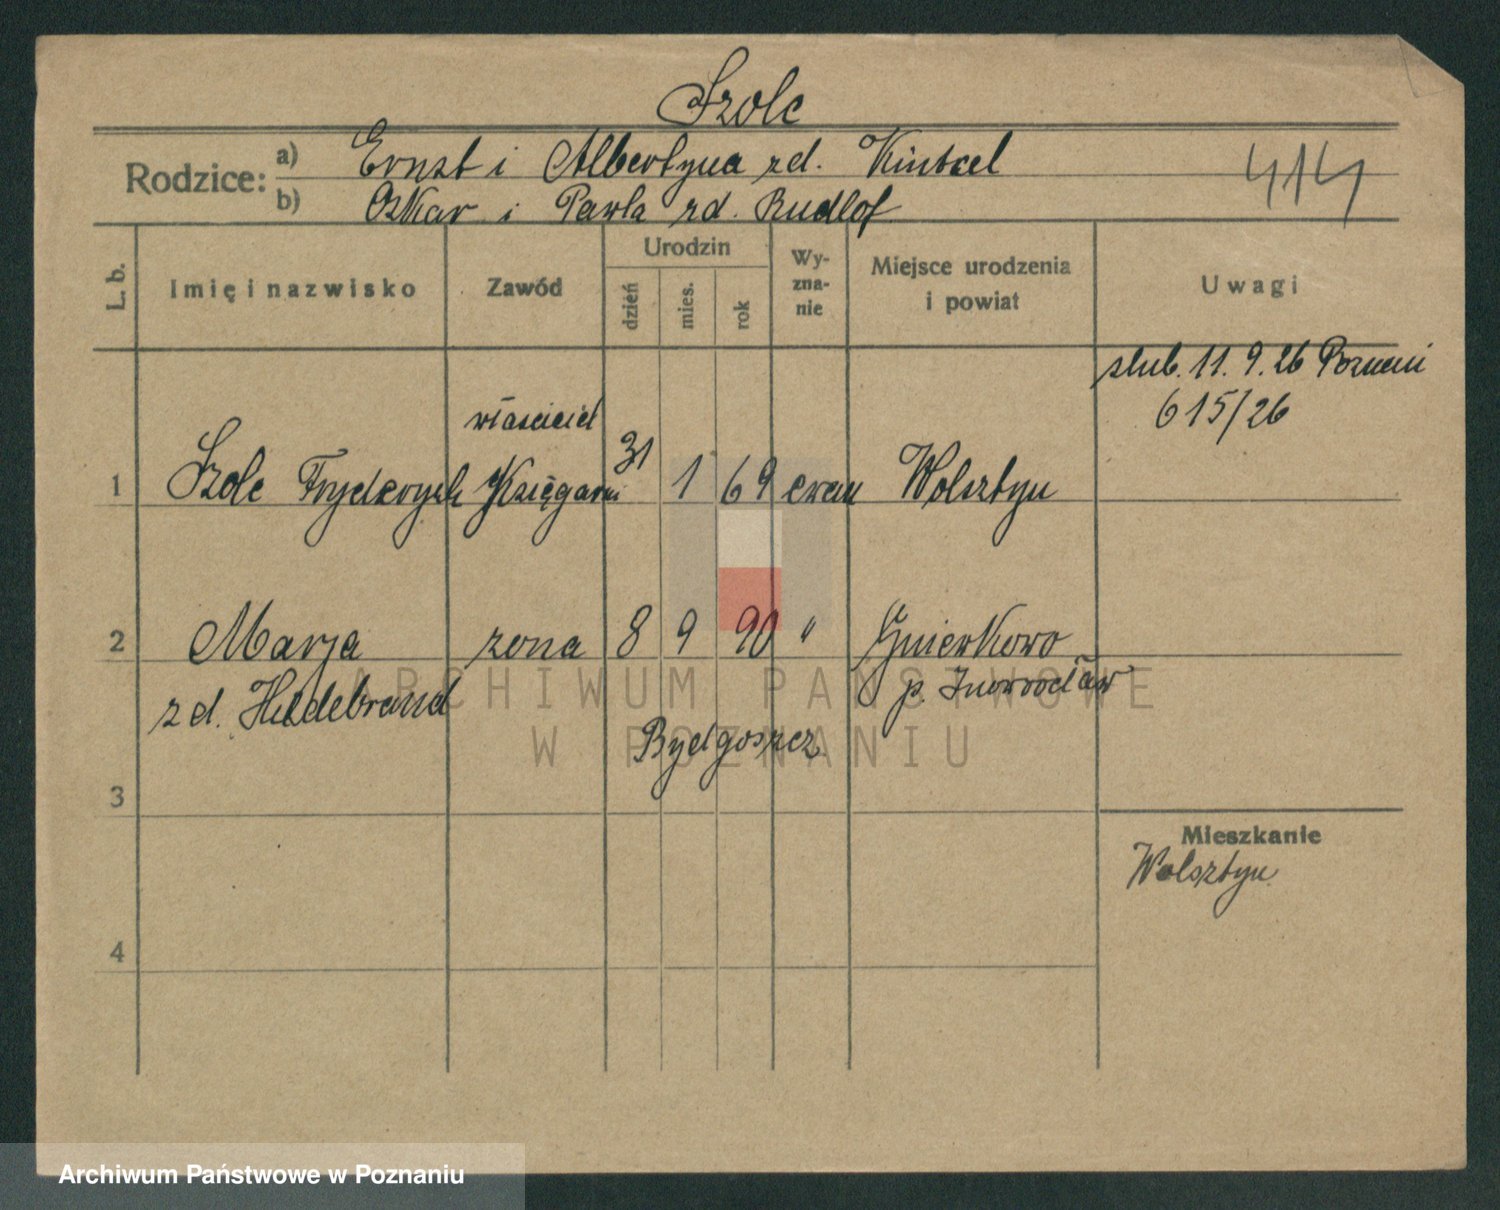 Szolc
Rodzice: a) Ernst i Albertyna zd. Kintzel
b) Oskar i Pawla zd. Rudlof
414
L. b.
Imię i nazwisko
Zawód
Urodzin
dzień
mies.
rok
Wy-
zna-
nie
Miejsce urodzenia
i powiat
Uwagi
ślub. 11. 9. 26 Poznań
615/26
1 Szolc Fryderyk właściciel Księgarni 31 1 69 ewan Wolsztyn
2 Marja żona 8 9 90 " Gniewkowo
zd. Hildebrand p. Inowrocław
Bydgoszcz
3
4
Mieszkanie
Wolsztyn
ARCHIWUM PAŃSTWOWE
W POZNANIU
Archiwum Państwowe w Poznaniu